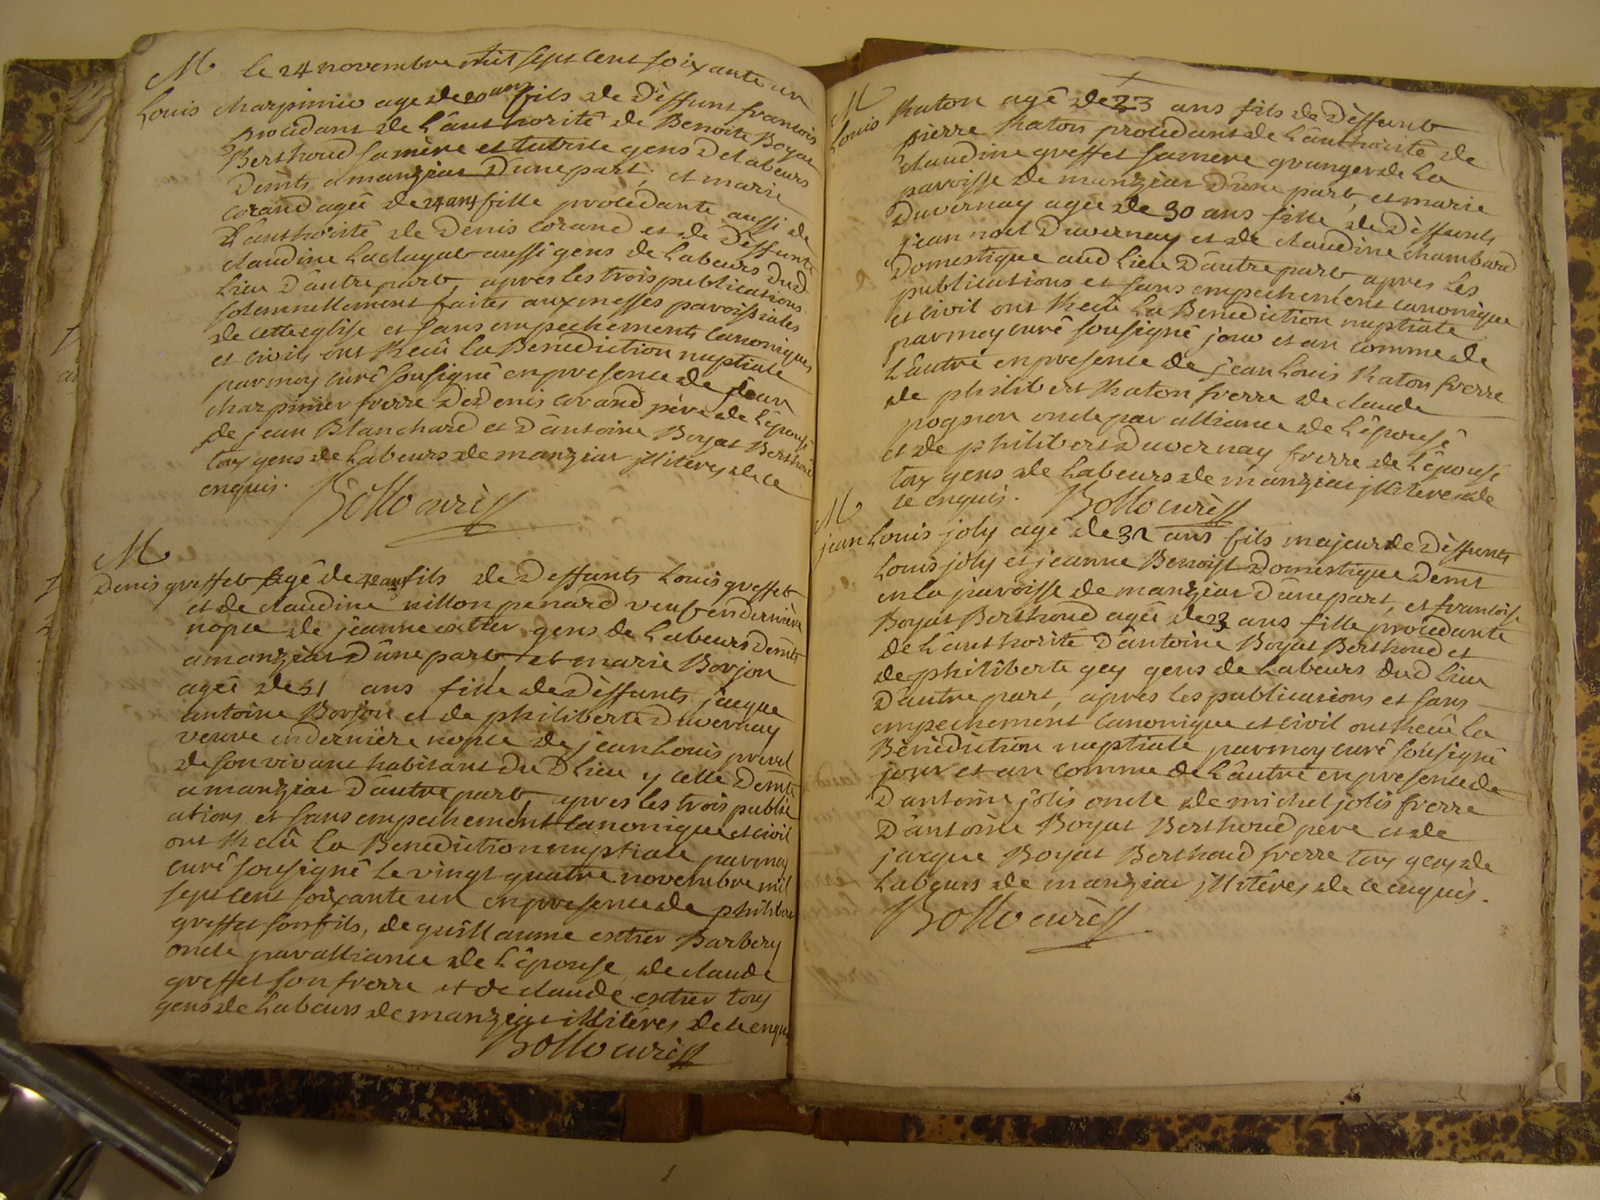 M le 24 novembre mil sept cent soixante un
Louis charpinier age de 20 ans fils de deffunt francois
procedant de l'authorité de Benoite Boyat
Berthoud sa mère et tutrise gens de labeurs
demts a manziat d'une part, et marie
corand agée de 24 ans fille procedante aussi de
L'authorité de denis corand et de deffunte
claudine aussi gens de labeurs dud
lieu d'autre part, apres les trois publications
solemnellement faites aux messes paroissiales
de cette eglise et sans empechements canoniques
et civils ont Reçû la Benediction nuptiale
par moy curé soussigné en presence de jean
charpinier frerre de denis corand père de l'épouse
de jean Blanchard et d'antoine Boyat Berthoud
tous gens de labeurs de manziat illiterés de ce
enquis. Bollo curé
M
Denis greffet agé de 42 ans fils de deffunts Louis greffet
et de claudine nillon penard veuf en dernière
nopce de jeanne extier gens de labeurs demts
a manziat d'une part et marie Borjon
agée de 51 ans fille de deffunts jacque
antoine Borjon et de philiberte duvernay
veuve en dernière nopce de jean Louis prevel
de son vivant habitant du d lieu y celle demte
a manziat d'autre part, apres les trois public
ations et sans empechement canonique et civil
ont Reçû la Benediction nuptiale par moy
curé sousigné le vingt quatre novembre mil
sept cent soixante un en presence de philibert
greffet son fils, de guillaume extier Barbery
oncle par alliance de l'épouse, de claude
greffet son frerre et de claude extier tous
gens de labeurs de manziat illiterés de ce enquis
Bollo curé
M
Louis Raton agé de 23 ans fils de deffunt
pierre Raton procedant de l'authorité de
claudine greffet sa mere granger de la
paroisse de manziat d'une part, et marie
Duvernay agée de 30 ans fille de deffunts
jean noel Duvernay et de claudine chambard
Domestique aud lieu d'autre part, apres les
publications et sans empechement canonique
et civil ont Reçû la Benediction nuptiale
par moy curé sousigné jour et an comme de
L'autre en presence de jean Louis Raton frerre
de philibert Raton frerre de claude
pognon oncle par alliance de l'épouse
et de philibert Duvernay frerre de l'épouse
tous gens de labeurs de manziat illiterés de
ce enquis. Bollo curé
M
jean Louis joly agé de 32 ans fils majeur de deffunts
Louis joly et jeanne Benoist Domestique demt
en la paroisse de manziat d'une part, et francoise
Boyat Berthoud agée de 23 ans fille procedante
de l'authorité d'antoine Boyat Berthoud et
de philiberte gey gens de labeurs dud lieu
d'autre part, apres les publications et sans
empechement canonique et civil ont Reçû la
Bénédiction nuptiale par moy curé sousigné
jour et an comme de l'autre en presence de
d'antoine jolis oncle de michel jolis frerre
d'antoine Boyat Berthoud pere et de
jacque Boyat Berthoud frerre tous gens de
labeurs de manziat illiterés de ce enquis.
Bollo curé